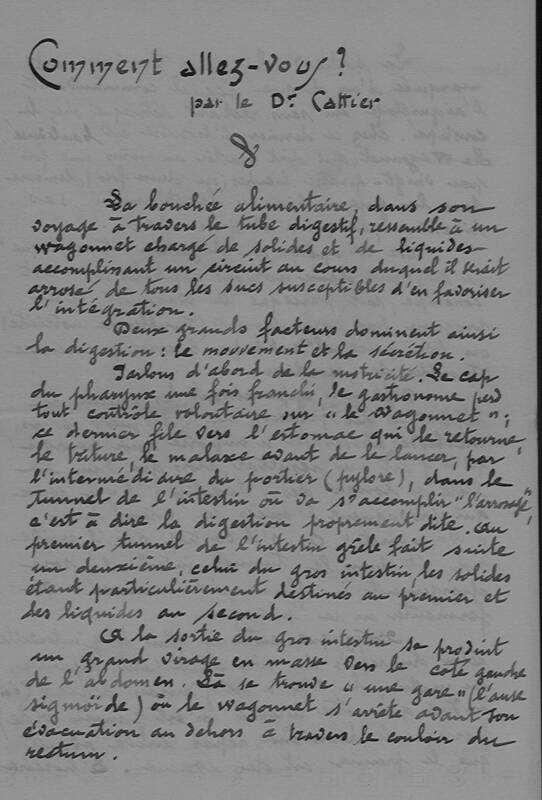 Comment allez-vous?
par le Dr Cattier
La bouchée alimentaire, dans son
voyage à travers le tube digestif, ressemble à un
wagonnet chargé de solides et de liquides
accomplissant un circuit au cours duquel il serait
arrosé de tous les sucs susceptibles d'en favoriser
l'intégration.
Deux grands facteurs dominent ainsi
la digestion : le mouvement et la sécrétion.
Parlons d'abord de la motricité. Le cap
du pharynx une fois franchi, le gastronome perd
tout contrôle volontaire sur "le wagonnet";
ce dernier file vers l'estomac qui le retourne,
le triture, le malaxe avant de le lancer, par
l'intermédiaire du portier (pylore), dans le
tunnel de l'intestin où va s'accomplir "l'arrosage",
c'est à dire la digestion proprement dite. Au
premier tunnel de l'intestin grêle fait suite
un deuxième, celui du gros intestin, les solides
étant particulièrement destinés au premier et
des liquides au second.
A la sortie du gros intestin se produit
un grand virage en masse vers le côté gauche
de l'abdomen. Là se trouve "une gare" (l'anse
sigmoïde) où le wagonnet s'arrête avant son
évacuation au dehors à travers le couloir du
rectum.